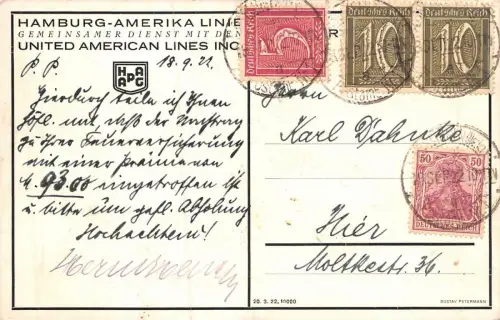 HAMBURG-AMERIKA LINIE
GEMEINSAMER DIENST MIT DEN
UNITED AMERICAN LINES INC.
HAPAG
P. P. 18.9.22.
Hierdurch teile ich Ihnen
höfl. mit, daß der Nachtrag
zu Ihrer Feuerversicherung
mit einer Prämie von
M. 93.00 eingetroffen ist
u. bitte um gefl. Abholung
Hochachtend!
Deutsches Reich
5
Deutsches Reich
10
Deutsches Reich
10
Herrn
Karl Dahnke
50 50
DEUTSCHES REICH
Hier
Moltkestr. 36.
20. 3. 22. 10000
GUSTAV PETERMANN